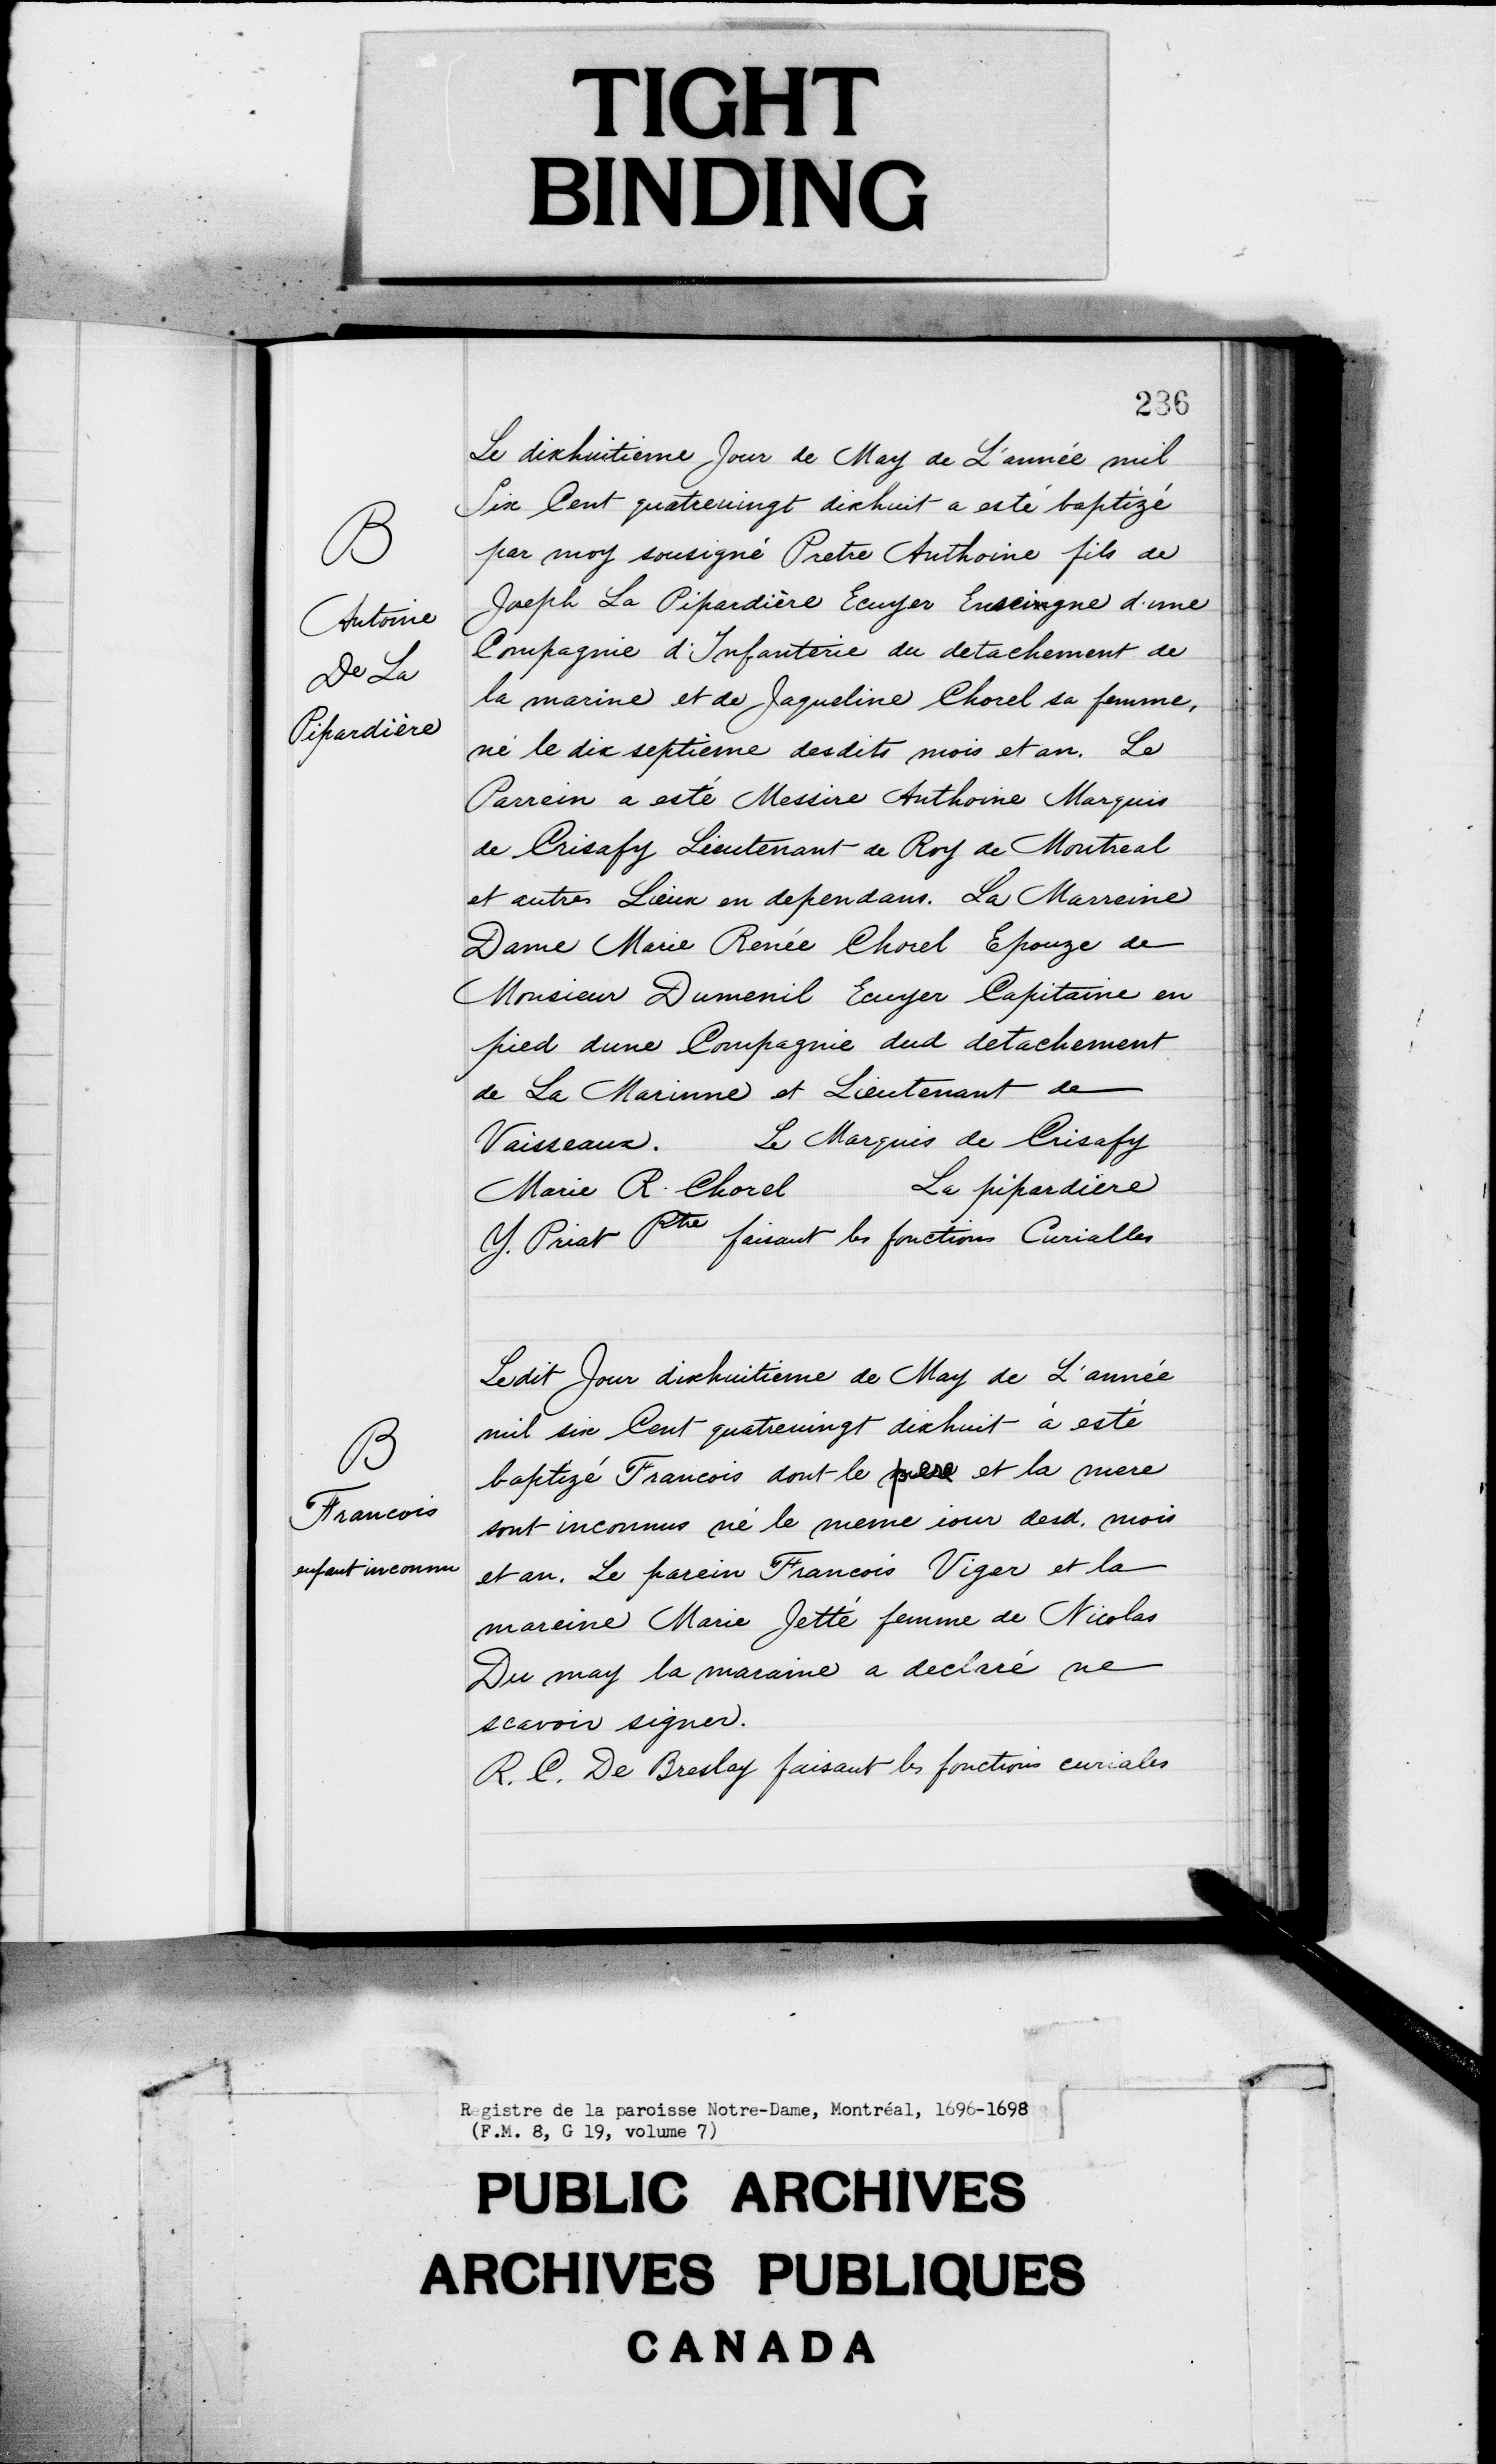 TIGHT
BINDING
236
Le dixhuitieme Jour de May de L'année mil
Six Cent quatreuingt dixhuit a esté baptizé
B
par moy sousigné Pretre Anthoine fils de
Antoine
De La
Pipardière
Joseph La Pipardière Ecuyer Enseingne d'une
Compagnie d'Infanterie du detachement de
la marine et de Jaqueline Chorel sa femme,
né le dix septième desdits mois et an. Le
Parrein a esté Messire Anthoine Marquis
de Crisafy Lieutenant de Roy de Montreal
et autres Lieux en dependans. La Marreine
Dame Marie Renée Chorel Epouze de
Monsieur Dumenil Ecuyer Capitaine en
pied dune Compagnie dud detachement
de La Marinne et Lieutenant de
Vaisseaux. Le Marquis de Crisafy
Marie R. Chorel La pipardiere
Y. Priat Ptre faisant les fonctions Curialles
Ledit Jour dixhuitieme de May de L'année
mil six Cent quatreuingt dixhuit à esté
B
Francois
enfant inconnu
baptizé Francois dont le pere et la mere
sont inconnus né le meme iour desd. mois
et an. Le parein Francois Viger et la
mareine Marie Jetté femme de Nicolas
Du may la maraine a declaré ne
scavoir signer.
R. C. De Breslay faisant les fonctions curiales
Registre de la paroisse Notre-Dame, Montréal, 1696-1698
(F.M. 8, G 19, volume 7)
PUBLIC ARCHIVES
ARCHIVES PUBLIQUES
CANADA